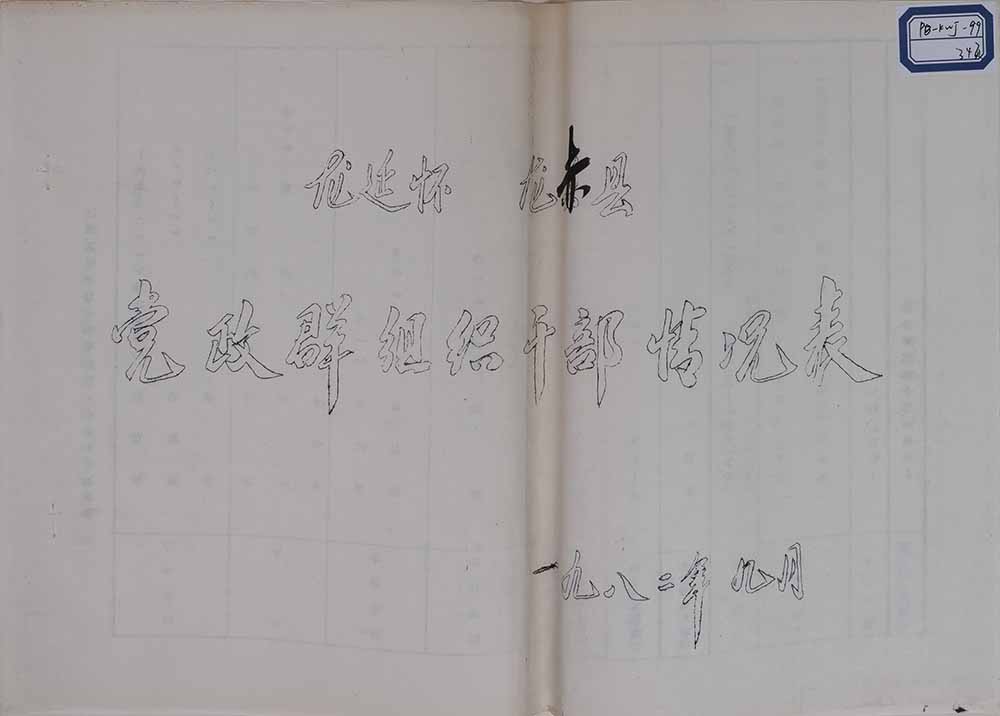 PB-KWJ-99
343
龙延怀 龙赤县
党政群组织干部情况表
一九八二年九月